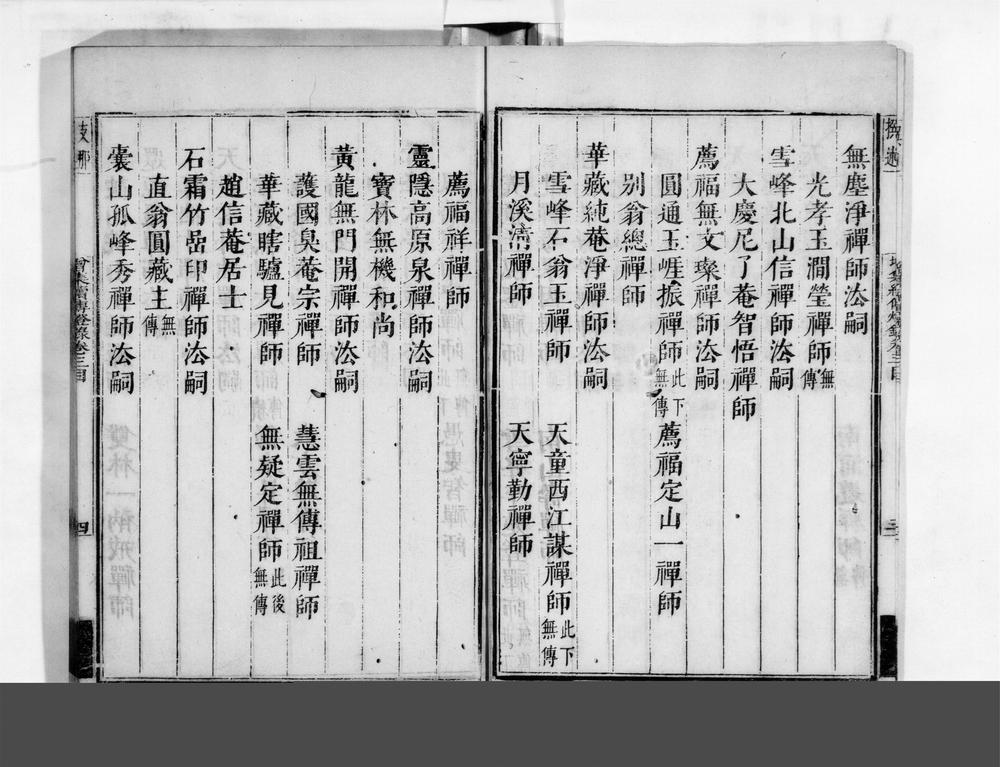 無塵淨禪師法嗣
光孝玉澗瑩禪師無傳
雪峰北山信禪師法嗣
大慶尼了菴智悟禪師
薦福無文璨禪師法嗣
圓通玉崕振禪師此下無傳 薦福定山一禪師
別翁總禪師
華藏純菴淨禪師法嗣
雪峰石翁玉禪師 天童西江謀禪師此下無傳
月溪清禪師 天寧勤禪師
薦福祥禪師
靈隱高原泉禪師法嗣
寶林無機和尚
黃龍無門開禪師法嗣
護國臭菴宗禪師 慧雲無傳祖禪師
華藏瞎驢見禪師 無疑定禪師此後無傳
趙信菴居士
石霜竹嵒印禪師法嗣
直翁圓藏主無傳
囊山孤峰秀禪師法嗣
支那
增集續傳燈錄卷三目
四